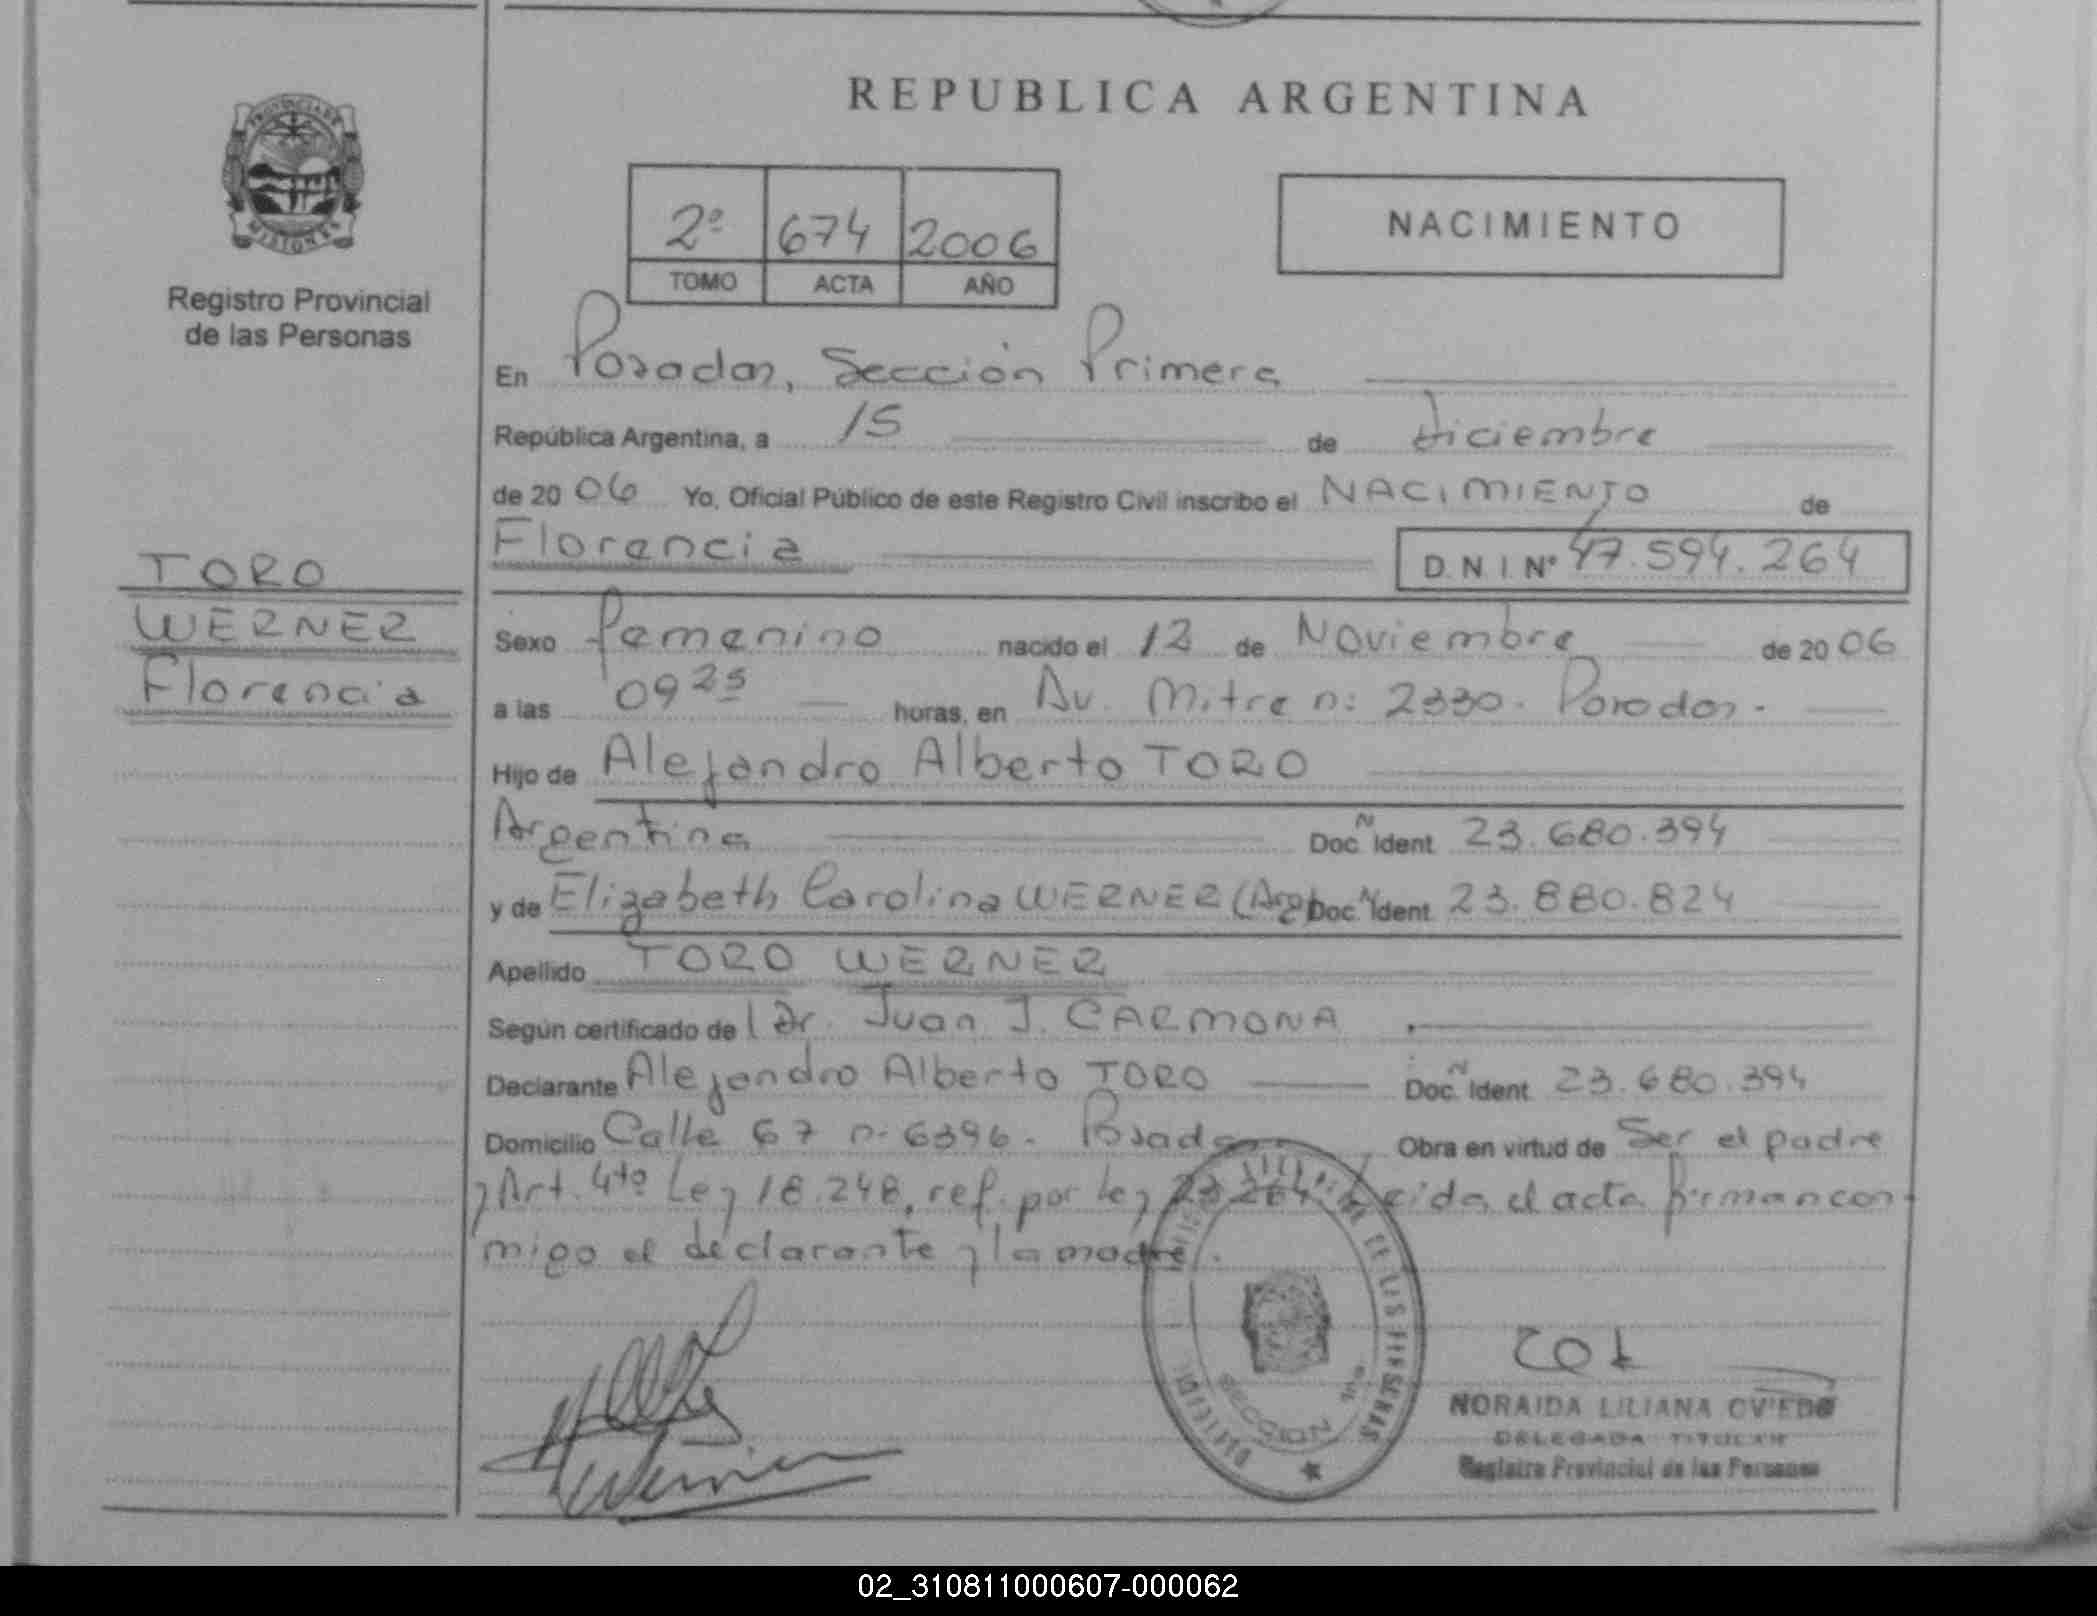 REPUBLICA ARGENTINA
PROVINCIA DE
MISIONES
Registro Provincial
de las Personas
2º 674 2006
TOMO ACTA AÑO
NACIMIENTO
En Posadas, Sección Primera
República Argentina, a 15 de diciembre
de 2006 Yo, Oficial Público de este Registro Civil inscribo el NACIMIENTO de
Florencia D.N.I. Nº 47.594.264
TORO
WERNER
Florencia
Sexo femenino nacido el 12 de Noviembre de 2006
a las 09 25 horas, en Av. Mitre n: 2330. Posadas.
Hijo de Alejandro Alberto TORO
Argentina Doc. N Ident. 23.680.394
y de Elizabeth Carolina WERNER (Arg) Doc. N Ident. 23.880.824
Apellido TORO WERNER
Según certificado de l Dr. Juan J. CARMONA
Declarante Alejandro Alberto TORO Doc. N Ident. 23.680.394
Domicilio Calle 67 n: 6396. Posadas Obra en virtud de Ser el padre
y Art. 4to Ley 18.248, ref. por ley 23.264. el acta firman con-
migo el declarante y la madre.
DE LAS PERSONAS
SECCION
Werner
NORAIDA LILIANA OVIEDO
DELEGADA TITULAR
Registro Provincial de las Personas
02_310811000607-000062